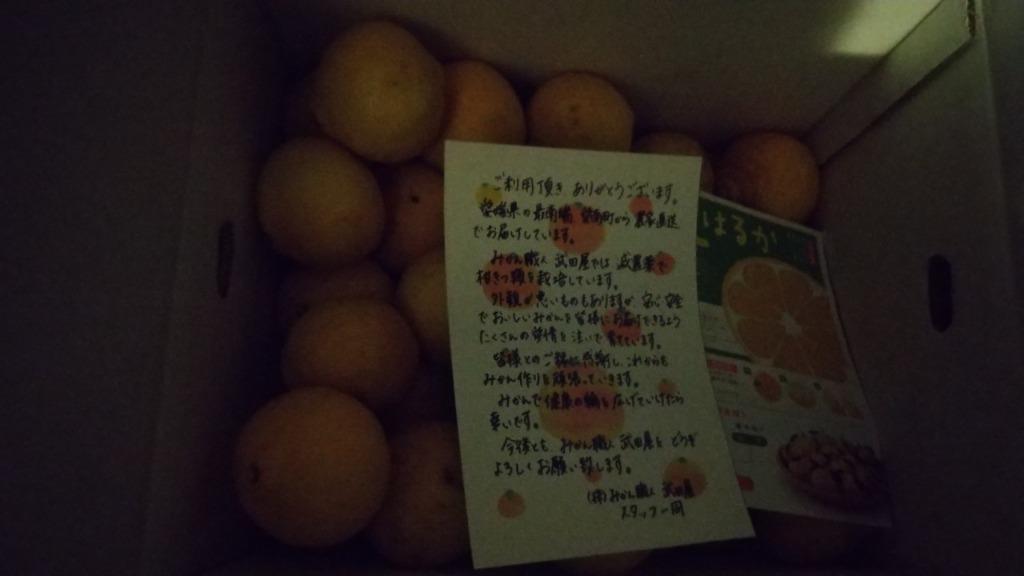 ご利用頂き ありがとうございます。
愛媛県の最南端 愛南町から 農家直送
でお届けしています。
みかん職人 武田屋では 減農薬で
柑きつ類を栽培しています。
外観が悪いものもありますが 安心 安全
でおいしいみかんを皆様にお届けできるよう
たくさんの愛情を注いで育てています。
皆様とのご縁に感謝し、これからも
みかん作りを頑張っていきます。
みかんで健康の輪を広げていけたら
幸いです。
今後とも、みかん職人 武田屋を どうぞ
よろしくお願い致します。
(株)みかん職人 武田屋
スタッフ一同
はるか